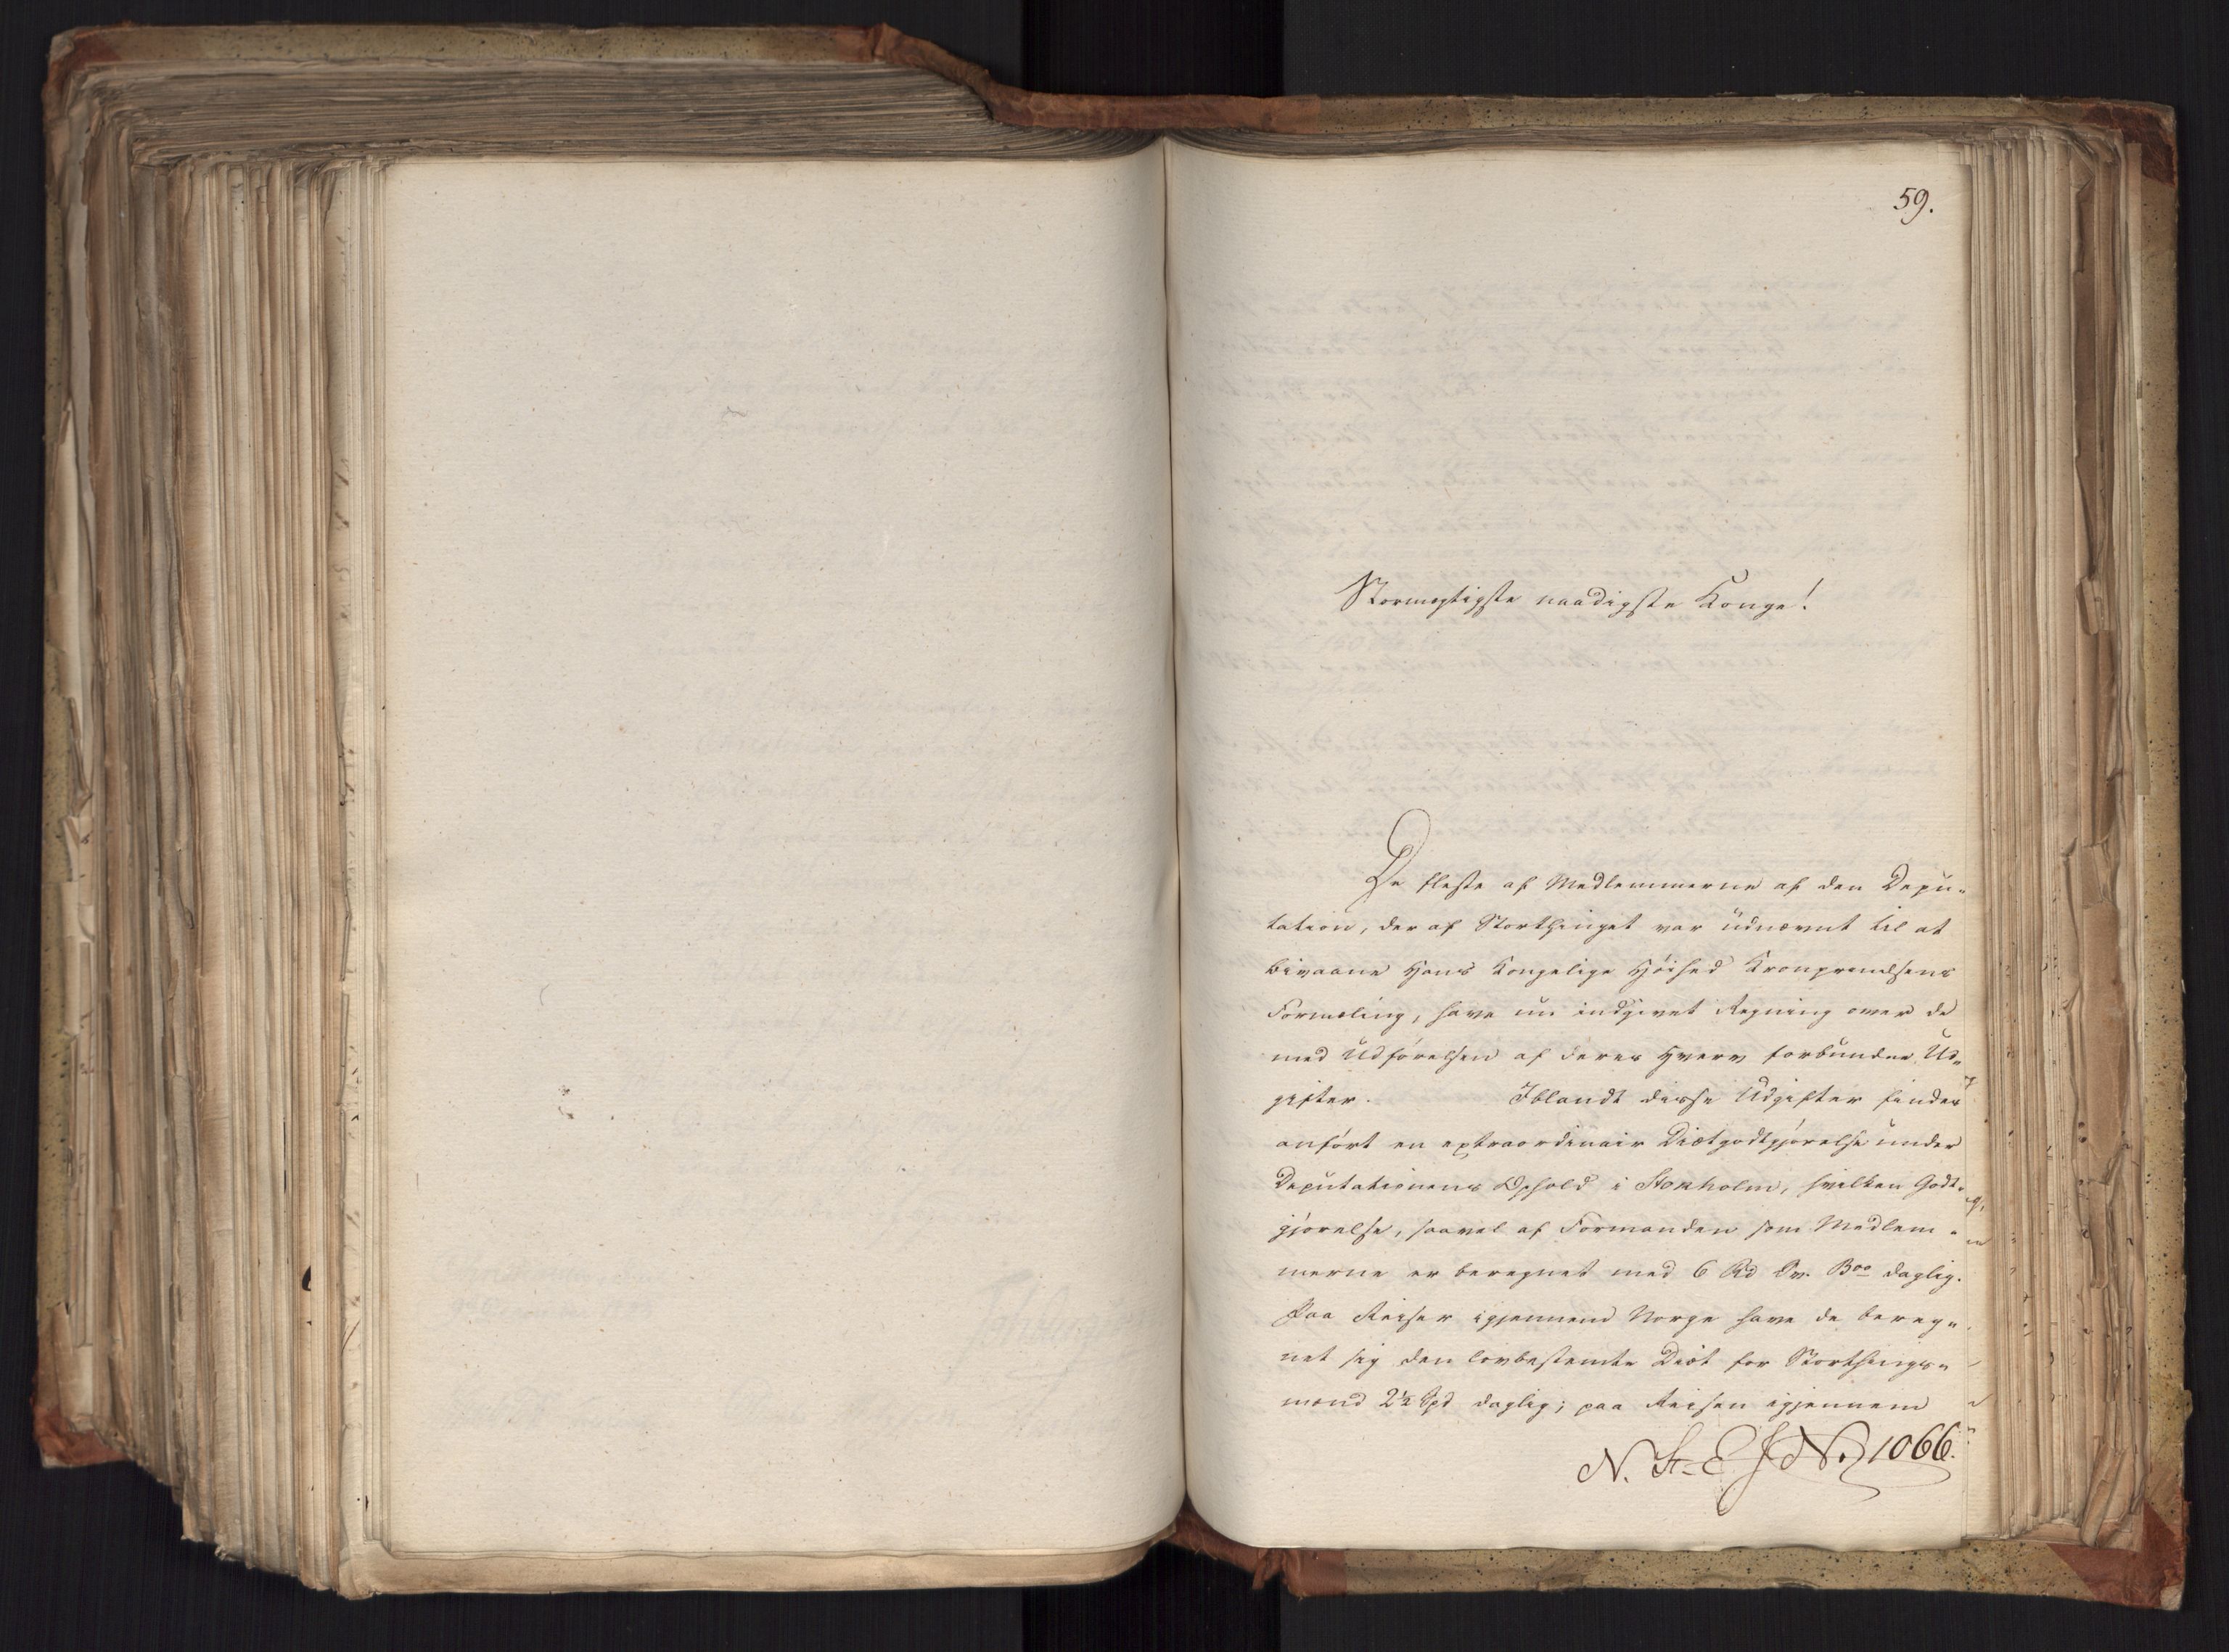 59.
Stormægtigste naadigste Konge!
De fleste af Medlemmerne af den Depu-
tation, der af Storthinget var udnævnt til at
bivaane Hans Kongelige Höihed Kronprindsens
Formæling, have nu indgivet Regning over de
med Udförelsen af deres Hverv forbundne Ud-
gifter. Iblandt disse Udgifter findes
anfört en extraordinair Diætgodtgjörelse under
Deputationens Ophold i Stokholm, hvilken Godt-
gjörelse, saavel af Formanden som Medlem-
merne er beregnet med 6 Rd Sv. Bco daglig.
Paa Reiser igjennem Norge have de bereg-
net sig den lovbestemte Diæt for Storthings-
mænd 2½ Spd daglig; paa Reisen igjennem
N. St-E J N. 1066.